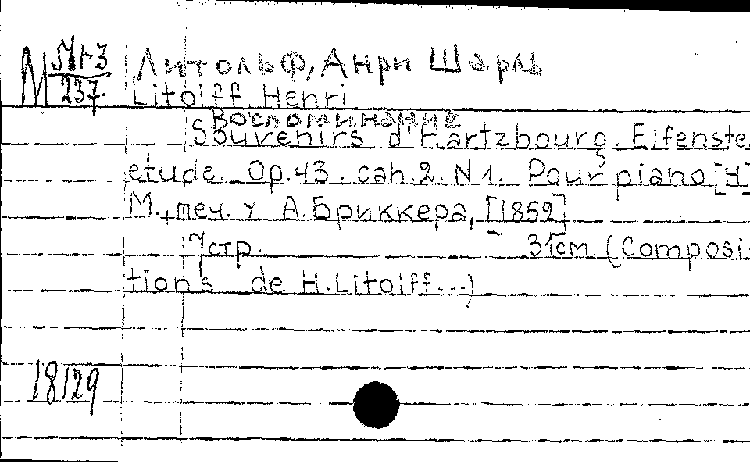 М 57-3/237
Литольф, Анри Шарль
Litolff Henri
Воспоминание
Souvenirs d'Hartzbourg. Elfenste
etude. Op.43. cah.2. N1. Pour piano [H]
М., печ. у А.Бриккера, [1852]
7 стр. 31см (Composi-
tions de H.Litolff...)
18129